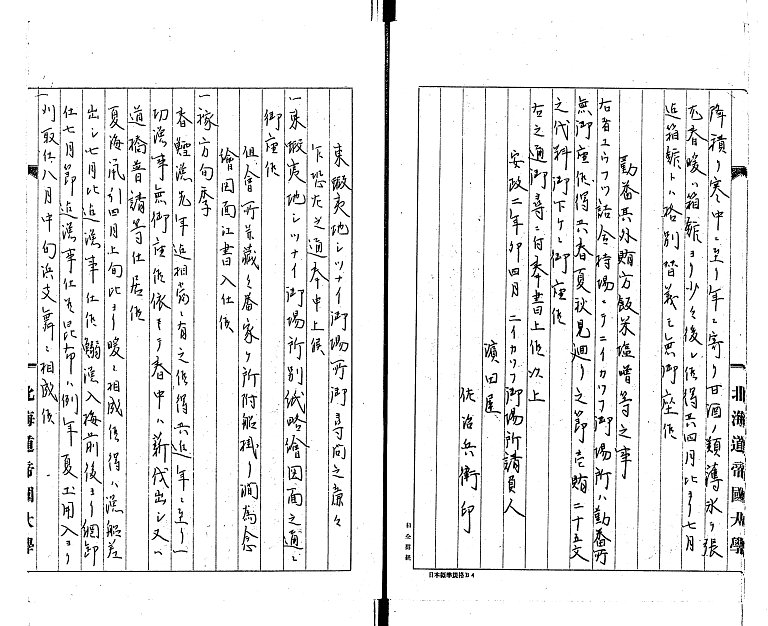 降積り寒中ニ至り年ニ寄り甘酒ノ類薄氷ヲ張
尤春暖ハ箱館ヨリ少々後レ候得共四月比ヨリ七月
迄箱館トハ格別替義モ無御座候
勤番其外賄方飯米塩噌等之事
右者エウフツ詰会持場ニテニイカツフ御場所ハ勤番所
無御座候得共春夏秋見廻り之節壱賄二十五文
之代料御下ケニ御座候
右之通御尋ニ付奉書上候以上
安政二年卯四月 ニイカツフ御場所請負人
濱田屋
佐治兵衛 印
東蝦夷地シツナイ御場所御尋向之廉々
乍恐左之通奉申上候
一東蝦夷地シツナイ御場所別紙略繪図面之通ニ
御座候
但會所並蔵々番家ヶ所附船掛り澗為念
繪図面江書入仕候
一稼方旬季
春鱈漁先年迄相應ニ有之候得共近年ニ至り一
切漁事無御座候依ヲ春中ハ薪伐出シ又ハ
道橋普請等仕居候
夏海鼠引四月上旬比ヨリ暖ニ相成候得ハ漁船差
出シ七月比迄漁事仕候鰯漁入梅前後ヨリ網卸
仕七月節迄漁事仕候昆布ハ例年夏土用入ヨリ
刈取仕八月中旬浜支舞ニ相成候
北海道帝國大學
北海道帝國大學
日本標準規格B4